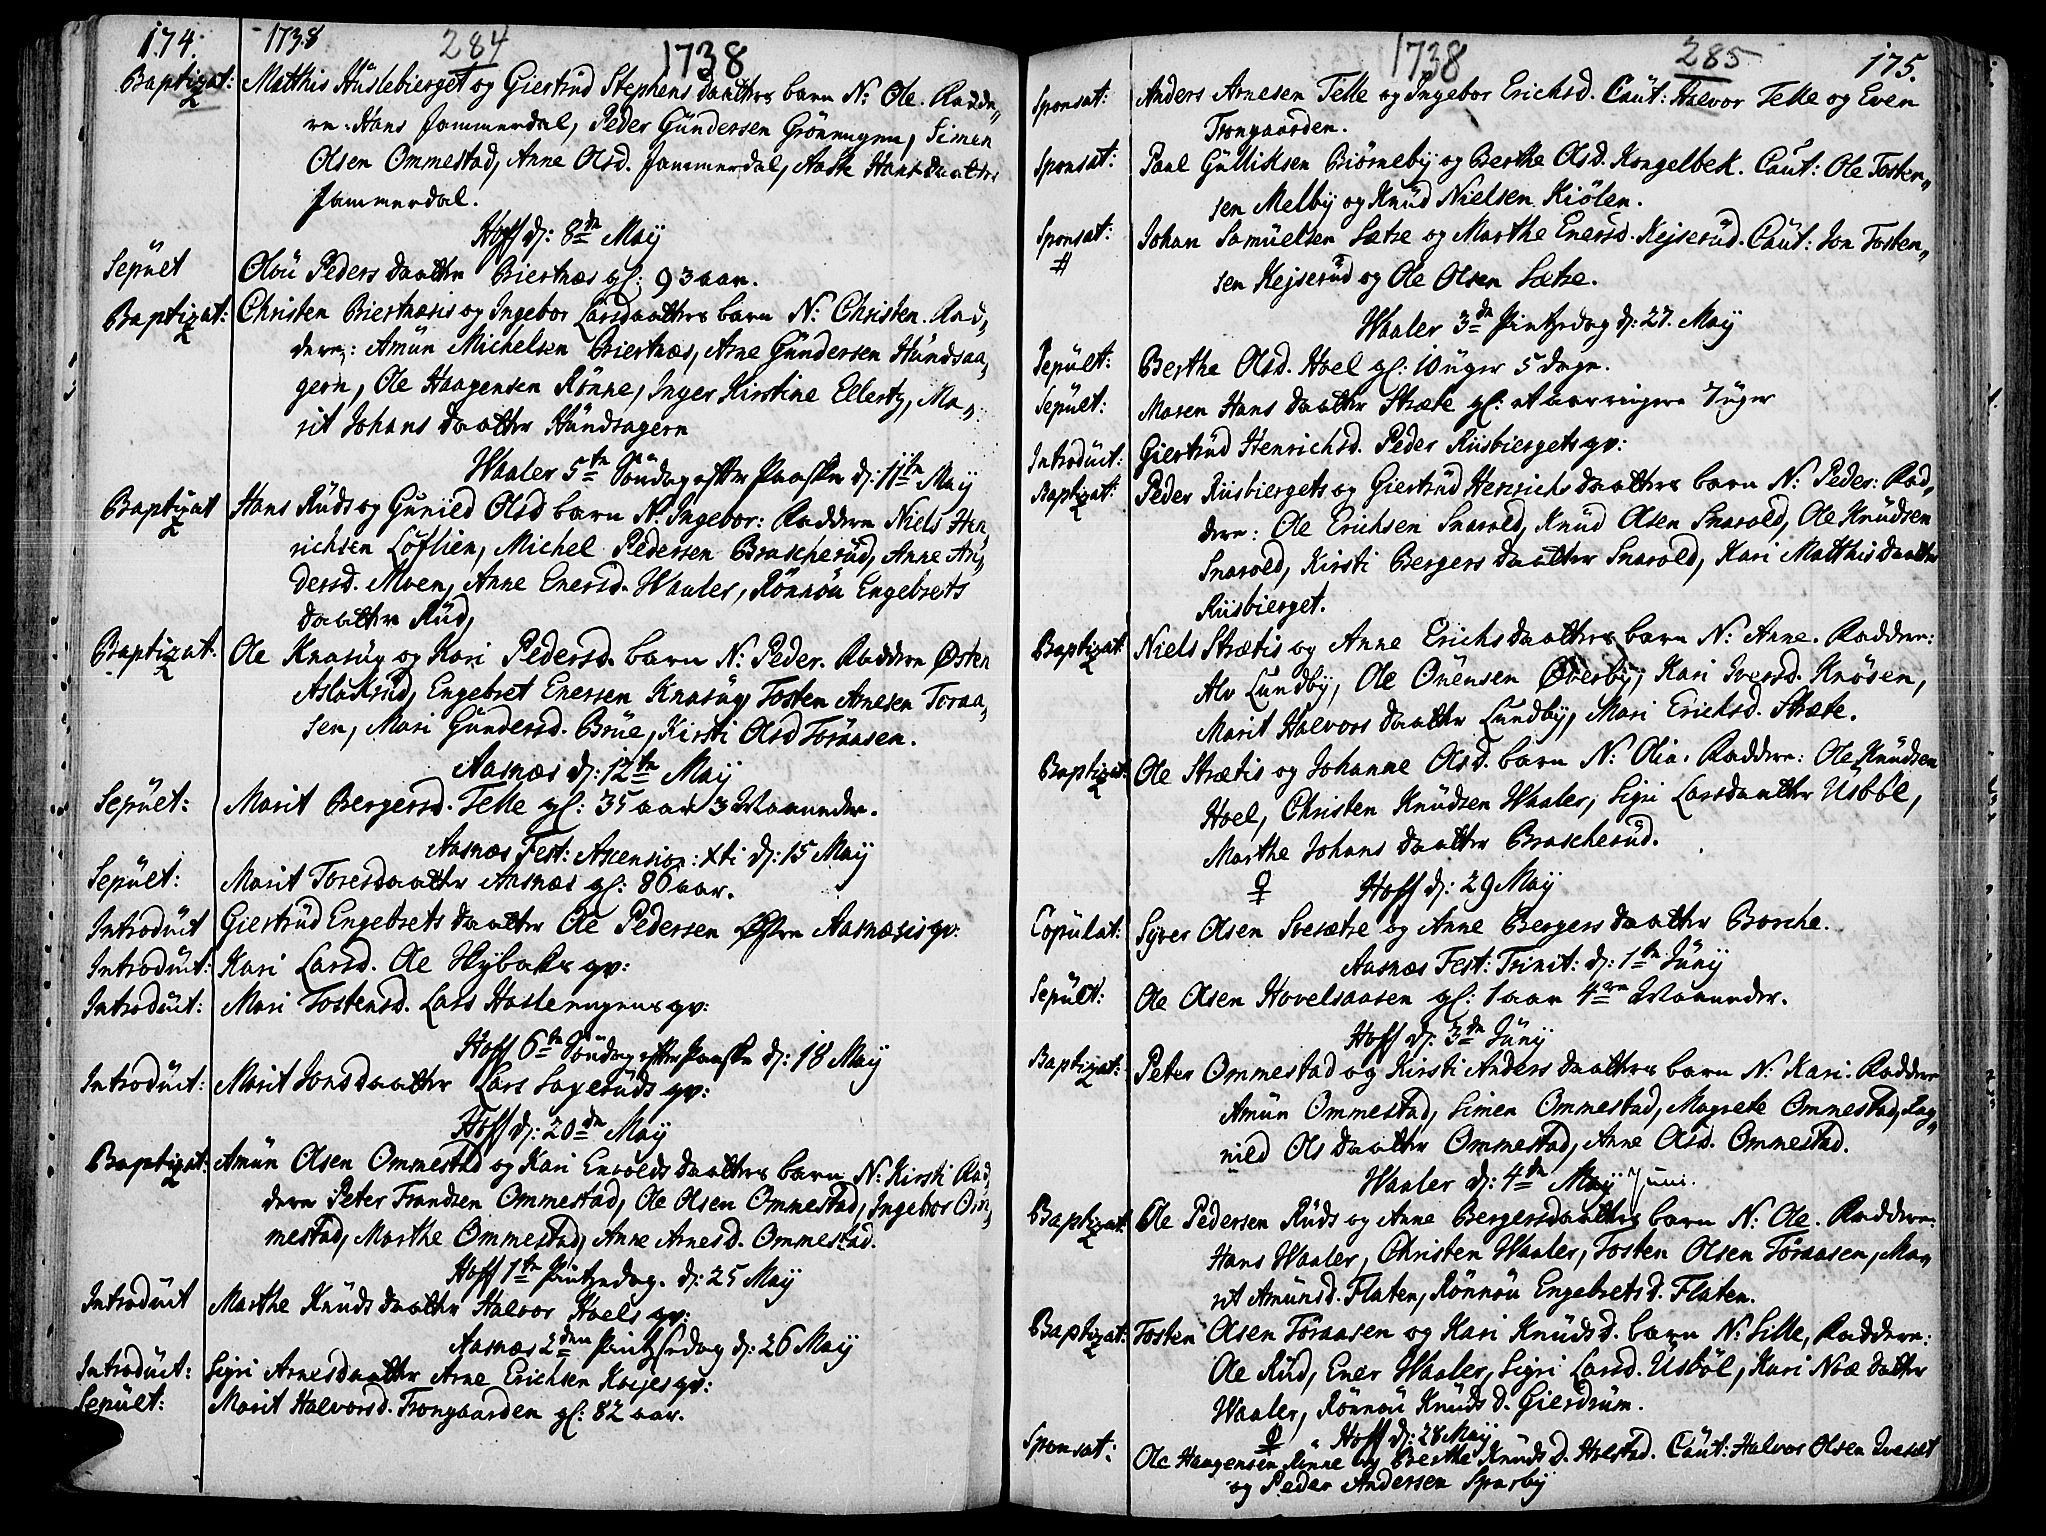 174. 1738 284 1738
Baptizat: Matthis Huslebierget og Giertrud Stephens daatters barn N: Ole. Fadde,,
re. Hans Jammerdal, Peder Gundersen Grönnengen, Simen
Olsen Ommestad, Anne Olsd. Jammerdal, Aaste Hans daatter
Jammerdal.
Hoff d: 8de May
Sepult Olöu Peders daatter Biertnæs gl: 93 aar.
Baptizat: Christen Biertnæsis og Ingebor Larsdaatters barn N: Christen. Fad,
dere: Amun Michelsen Biertnæs, Arne Gundersen Hundsaa,
gern, Ole Haagensen Rönne, Inger Kirstine Ellertz, Ma,,
rit Johans daatter Hundsagern
Waaler 5te Söndag efter Paaske d: 11te May
Baptizat Hans Ruds og Gunild Olsd barn N: Ingebor: Faddere Niels Hen,
richsen Löflien, Michel Pedersen Brascherud, Anne An,
dersd. Moen, Anne Enersd. Waaler, Rönnöu Engebrets
daatter Rud,
Baptizat. Ole Knasug og Kari Pedersd. barn N: Peder. Faddere Østen
Aslakrud, Engebret Enersen Knasug, Tosten Arnesen Toraa,
sen, Mari Gundersd. Brue, Kirsti Olsd Töraasen.
Aasnæs d: 12te May
Sepult: Marit Bergersd. Telle gl: 35 aar 3 Maaneder.
Aasnæs Fest: Ascension: Xti d: 15 May
Sepult: Marit Toresdaatter Aasnæs gl: 86 aar.
Introduit Giertrud Engebrets daatter Ole Pedersen Østre Aasnæsis qv:
Introduit: Kari Larsd. Ole Skybaks qv:
Introduit: Mari Tostensd. Lars Hastenengens qv:
Hoff 6te Söndag efter Paaske d: 18 May
Introduit: Marit Jonsdaatter Lars Sageruds qv:
Hoff d: 20de May
Baptizat: Amun Olsen Ommestad og Kari Envolds daatters barn N: Kirsti Fad,
dere Peter Frandsen Ommestad, Ole Olsen Ommestad, Ingebor Om,
mestad, Marthe Ommestad, Anne Arnesd. Ommestad.
Hoff 1te Pintzedag. d: 25 May
Introduit Marthe Knuds daatter Halvor Hoels qv:
Aasnæs 2den Pintzedag d: 26 May
Introduit: Sigri Arnesdaatter Arne Erichsen Kojes qv:
Sepult: Marit Halvorsd. Trongaarden gl: 82 aar.
1738 285 175.
Sponsat: Anders Arnesen Telle og Ingebor Erichsd. Caut: Halvor Telle og Even
Trongaarden.
Sponsat: Paul Gulliksen Biörneby og Berthe Olsd. Kongelbek. Caut: Ole Tosten,,
sen Melby og Knud Nielsen Kiölen.
Sponsat: Johan Samuelsen Sætre og Marthe Enersd. Kejserud. Caut: Jon Tosten,,
# sen Kejserud og Ole Olsen Sætre.
Waaler 3de Pintzedag d: 27. May
Sepult: Berthe Olsd. Hoel gl: 10 uger 5 dage.
Sepult: Maren Hans daatter Stræte gl: et aar ringere 7 uger
Introduit: Giertrud Henrichsd. Peder Riisbiergets qv:
Baptizat: Peder Riisbiergets og Giertrud Henrichs daatters barn N: Peder: Fad,
dere: Ole Erichsen Snarold, Knud Olsen Snarold, Ole Knudsen
Snarold, Kirsti Bergers daatter Snarold, Kari Matthis daatter
Riisbierget.
Baptizat Niels Strætis og Anne Erichs daatters barn N: Anne. Faddere:
Alv Lundby, Ole Onensen Øverby, Kari Iversd. Knösen,
Marit Halvors daatter Lundby, Mari Erichsd. Stræte.
Baptizat: Ole Strætis og Johanne Olsd. barn N: Olia. Faddere: Ole Knudsen
Hoel, Christen Knudsen Waaler, Sigri Larsdaatter Usböl,
Marthe Johans daatter Brascherud.
♀ Hoff d: 29 May
Copulat: Syver Olsen Svesætre og Anne Bergers daatter Borche.
Aasnæs Fest: Trinit: d: 1te Juny
Sepult: Ole Olsen Hovelsaasen gl: 1 aar 4re Maaneder.
Hoff d: 3de Juny
Baptizat: Peter Ommestad og Kirsti Anders daatters barn N: Kari. Faddere
Amun Ommestad, Simen Ommestad, Magrete Ommestad, Rag,,
nild Ols daatter Ommestad, Anne Olsd. Ommestad.
Waaler d: 4de May Juni.
Baptizat: Ole Pedersen Ruds og Anne Bergersdaatters barn N: Ole. Faddere:
Hans Waaler, Christen Waaler, Tosten Olsen Töraasen, Ma,
rit Amunsd. Flaten, Rönnöu Engebretsd. Flaten.
Baptizat: Tosten Olsen Töraasen og Kari Knudsd. barn N: Sille, Faddere:
Ole Rud, Ener Waaler, Sigri Larsd. Usböl, Kari Noæ datter
Waaler, Rönnöu Knudsd. Gierdrum.
♀ Hoff d: 28 May
Sponsat: Ole Haagensen Rönne og Berthe Knudsd. Holstad. Caut: Halvor Olsen Svesæt
og Peder Andersen Sparby